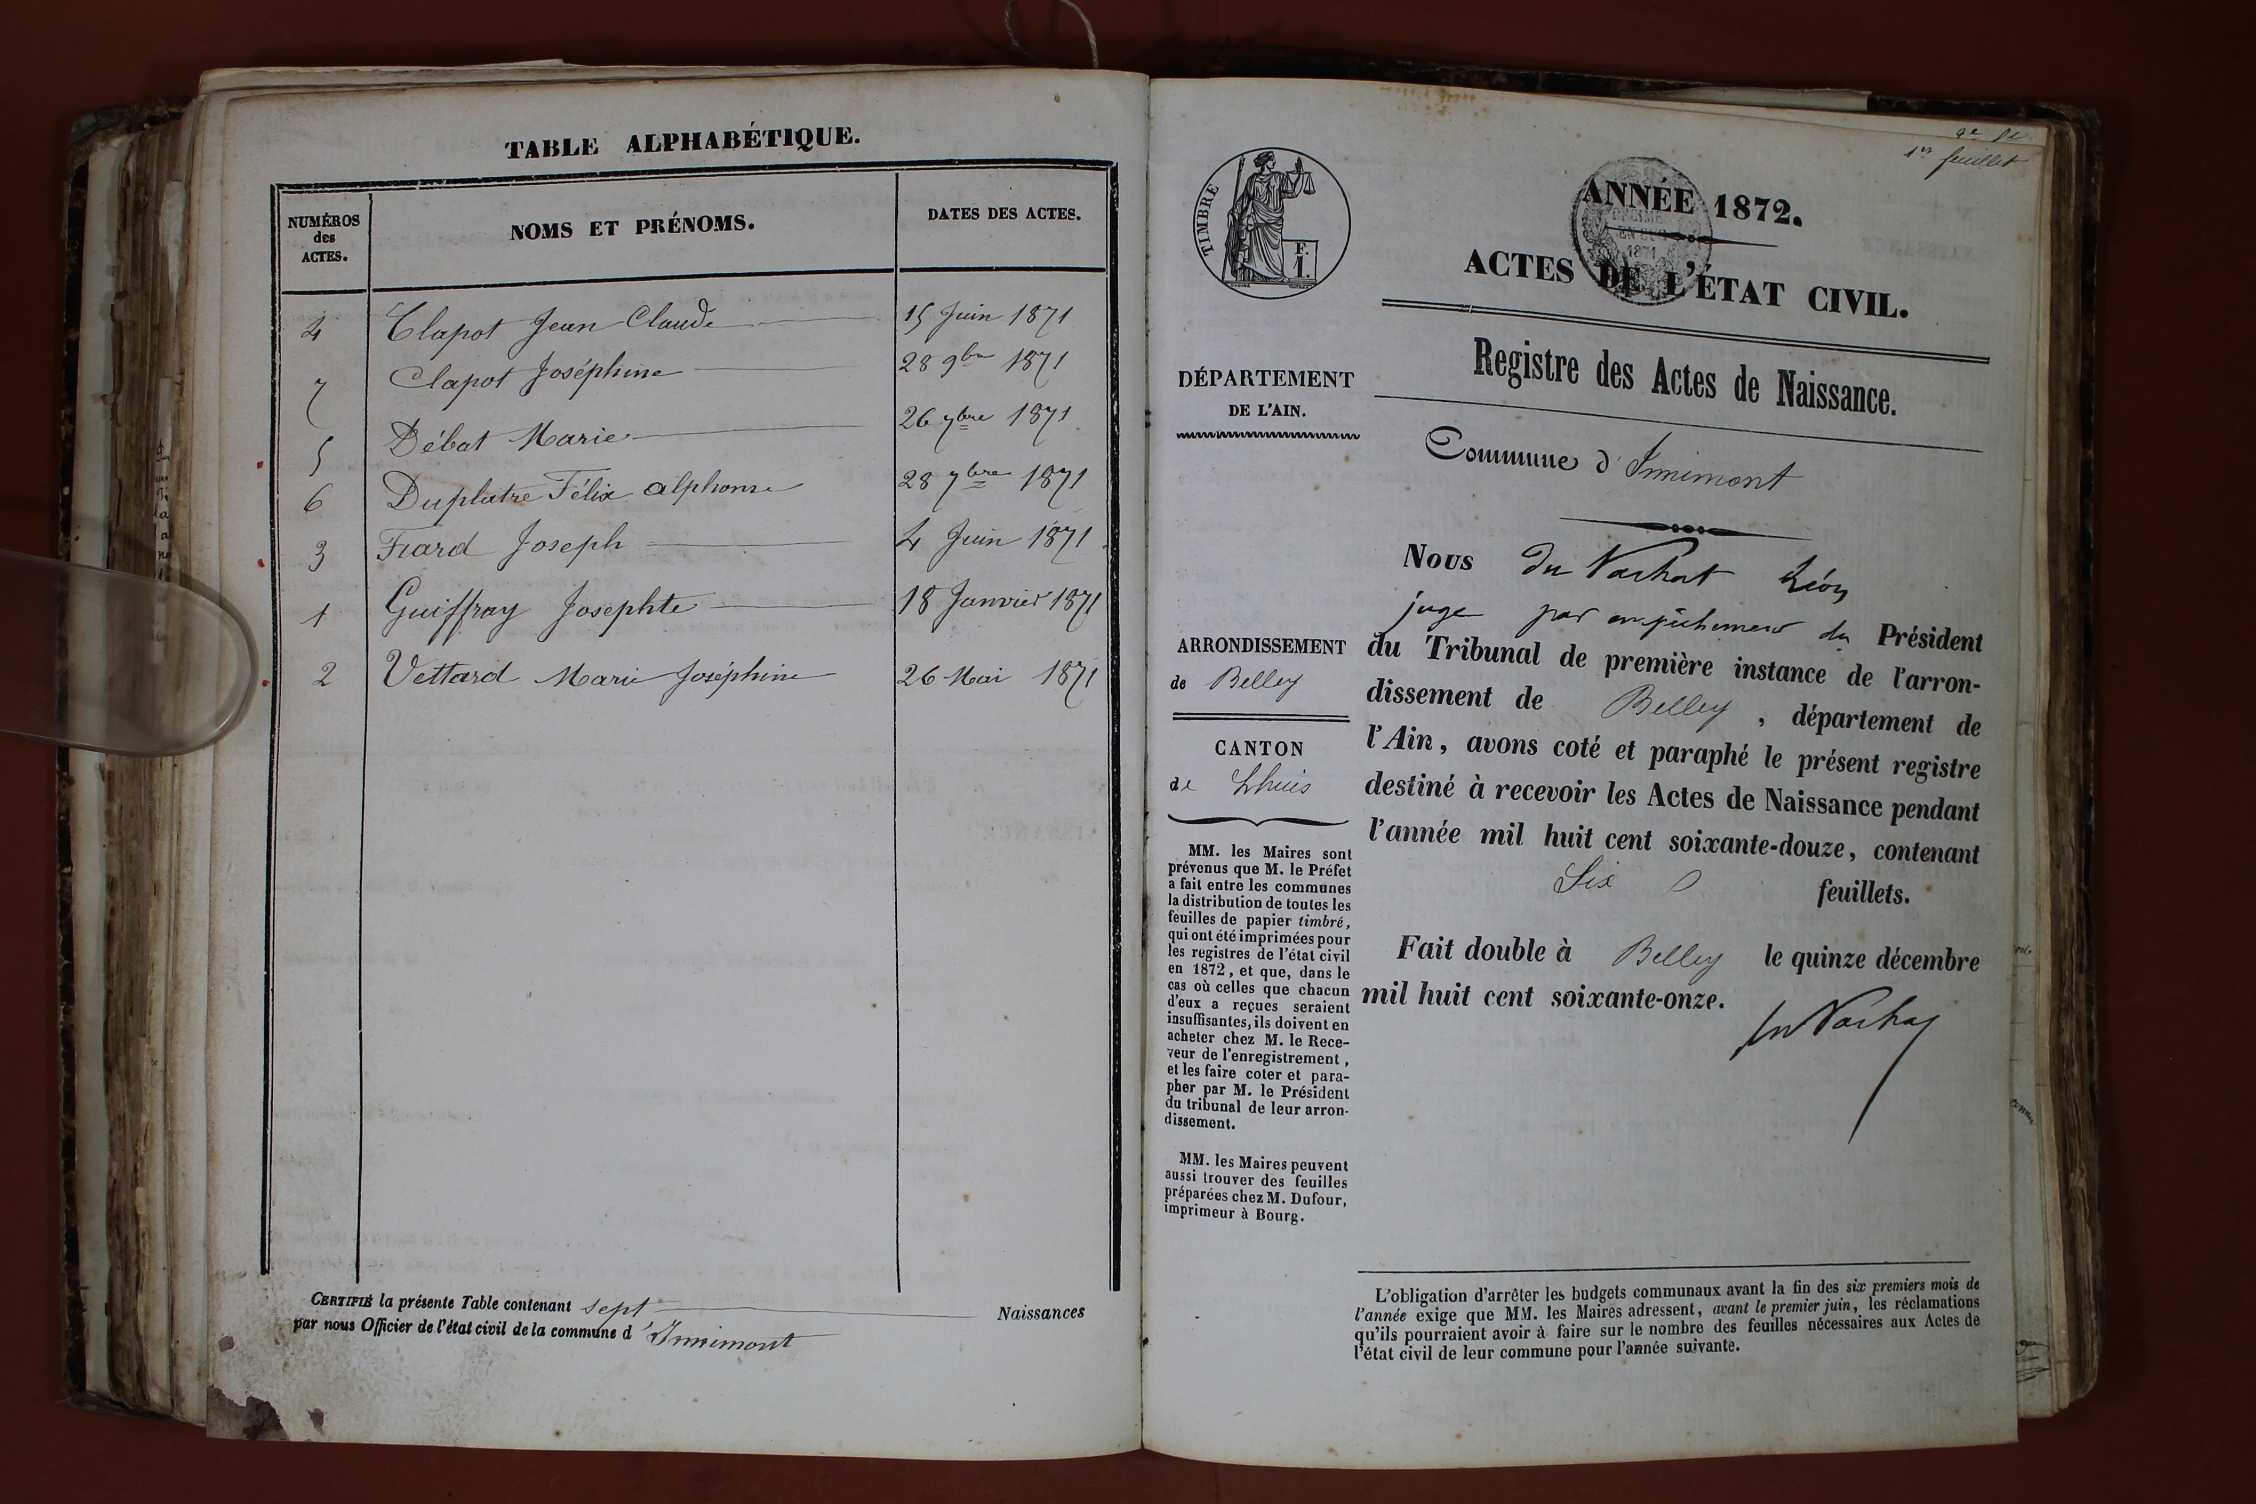 TABLE ALPHABÉTIQUE.
NUMÉROS des ACTES. NOMS ET PRÉNOMS. DATES DES ACTES.
4 Clapot Jean Claude 15 Juin 1871
7 Clapot Joséphine 28 9bre 1871
5 Débat Marie 26 7bre 1871
6 Duplatre Félix alphonse 28 7bre 1871
3 Fiard Joseph 4 Juin 1871
1 Guiffray Josephte 18 Janvier 1871
2 Vettard Marie Joséphine 26 Mai 1871
CERTIFIÉ la présente Table contenant sept Naissances
par nous Officier de l'état civil de la commune d'Innimont
1er feuillet
TIMBRE
F.
1.
ANNÉE 1872.
1871
ACTES DE L'ÉTAT CIVIL.
Registre des Actes de Naissance.
Commune d'Innimont
DÉPARTEMENT
DE L'AIN.
ARRONDISSEMENT
de Belley
CANTON
de Lhuis
MM. les Maires sont
prévenus que M. le Préfet
a fait entre les communes
la distribution de toutes les
feuilles de papier timbré,
qui ont été imprimées pour
les registres de l'état civil
en 1872, et que, dans le
cas où celles que chacun
d'eux a reçues seraient
insuffisantes, ils doivent en
acheter chez M. le Rece-
veur de l'enregistrement,
et les faire coter et para-
pher par M. le Président
du tribunal de leur arron-
dissement.
MM. les Maires peuvent
aussi trouver des feuilles
préparées chez M. Dufour,
imprimeur à Bourg.
Nous Du Vachat Léon
juge par empêchement du Président
du Tribunal de première instance de l'arron-
dissement de Belley, département de
l'Ain, avons coté et paraphé le présent registre
destiné à recevoir les Actes de Naissance pendant
l'année mil huit cent soixante-douze, contenant
Six feuillets.
Fait double à Belley le quinze décembre
mil huit cent soixante-onze.
Du Vachat
L'obligation d'arrêter les budgets communaux avant la fin des six premiers mois de
l'année exige que MM. les Maires adressent, avant le premier juin, les réclamations
qu'ils pourraient avoir à faire sur le nombre des feuilles nécessaires aux Actes de
l'état civil de leur commune pour l'année suivante.